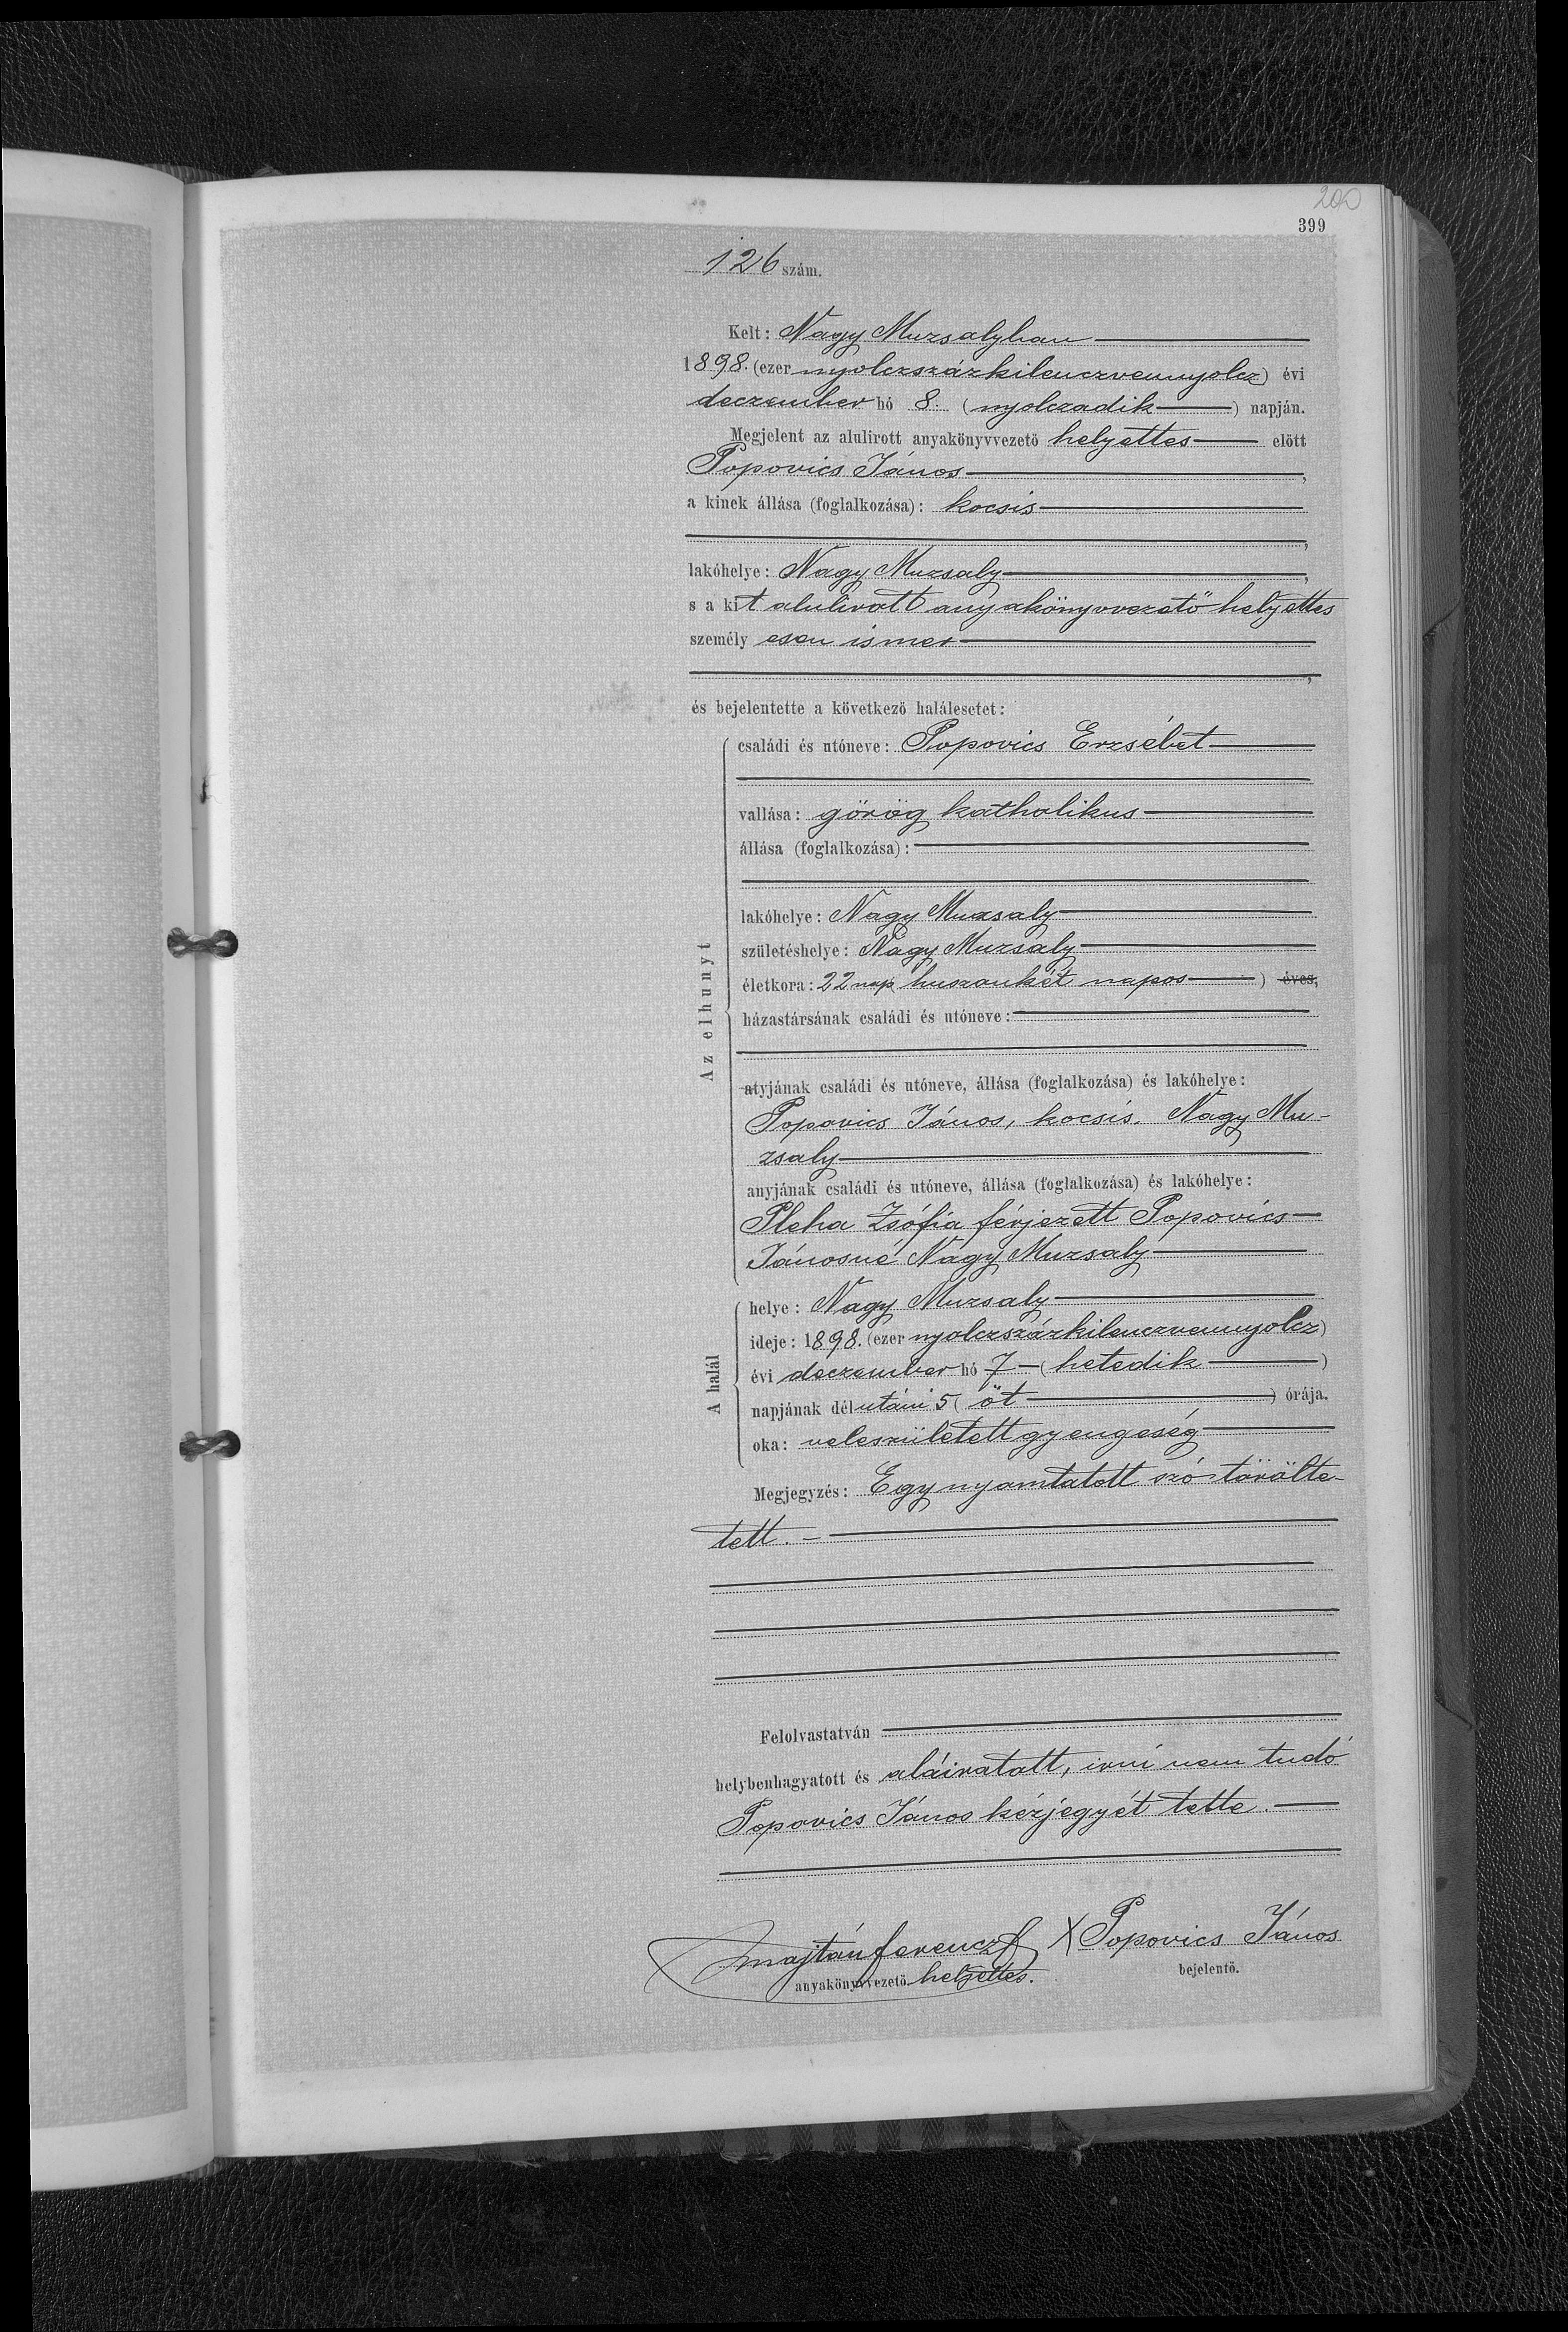 200
399
126 szám.
Kelt: Nagy Muzsalyban
1898. (ezer nyolczszázkilenczvennyolcz) évi
deczember hó 8. (nyolczadik) napján.
Megjelent az alulirott anyakönyvvezető helyettes előtt
Popovics János,
a kinek állása (foglalkozása): kocsis
,
lakóhelye: Nagy Muzsaly,
s a kit alulirott anyakönyvvezető helyettes
személyesen ismer
,
és bejelentette a következő halálesetet:
Az elhunyt
családi és utóneve: Popovics Erzsébet
vallása: görög katholikus
állása (foglalkozása):
lakóhelye: Nagy Muzsaly
születéshelye: Nagy Muzsaly
életkora: 22 nap (huszonkét napos) éves,
házastársának családi és utóneve:
atyjának családi és utóneve, állása (foglalkozása) és lakóhelye:
Popovics János, kocsis. Nagy Mu-
zsaly
anyjának családi és utóneve, állása (foglalkozása) és lakóhelye:
Pleha Zsófia férjezett Popovics
Jánosné Nagy Muzsaly
A halál
helye: Nagy Muzsaly
ideje: 1898. (ezer nyolczszázkilenczvennyolcz)
évi deczember hó 7 (hetedik)
napjának délutáni 5 (öt) órája.
oka: veleszületett gyengeség
Megjegyzés: Egy nyamtatott szó törölte-
tett.
Felolvastatván
helybenhagyatott és aláiratott, irni nem tudó
Popovics János kézjegyét tette.
Majtán Ferencz X Popovics János
anyakönyvvezető helyettes. bejelentő.